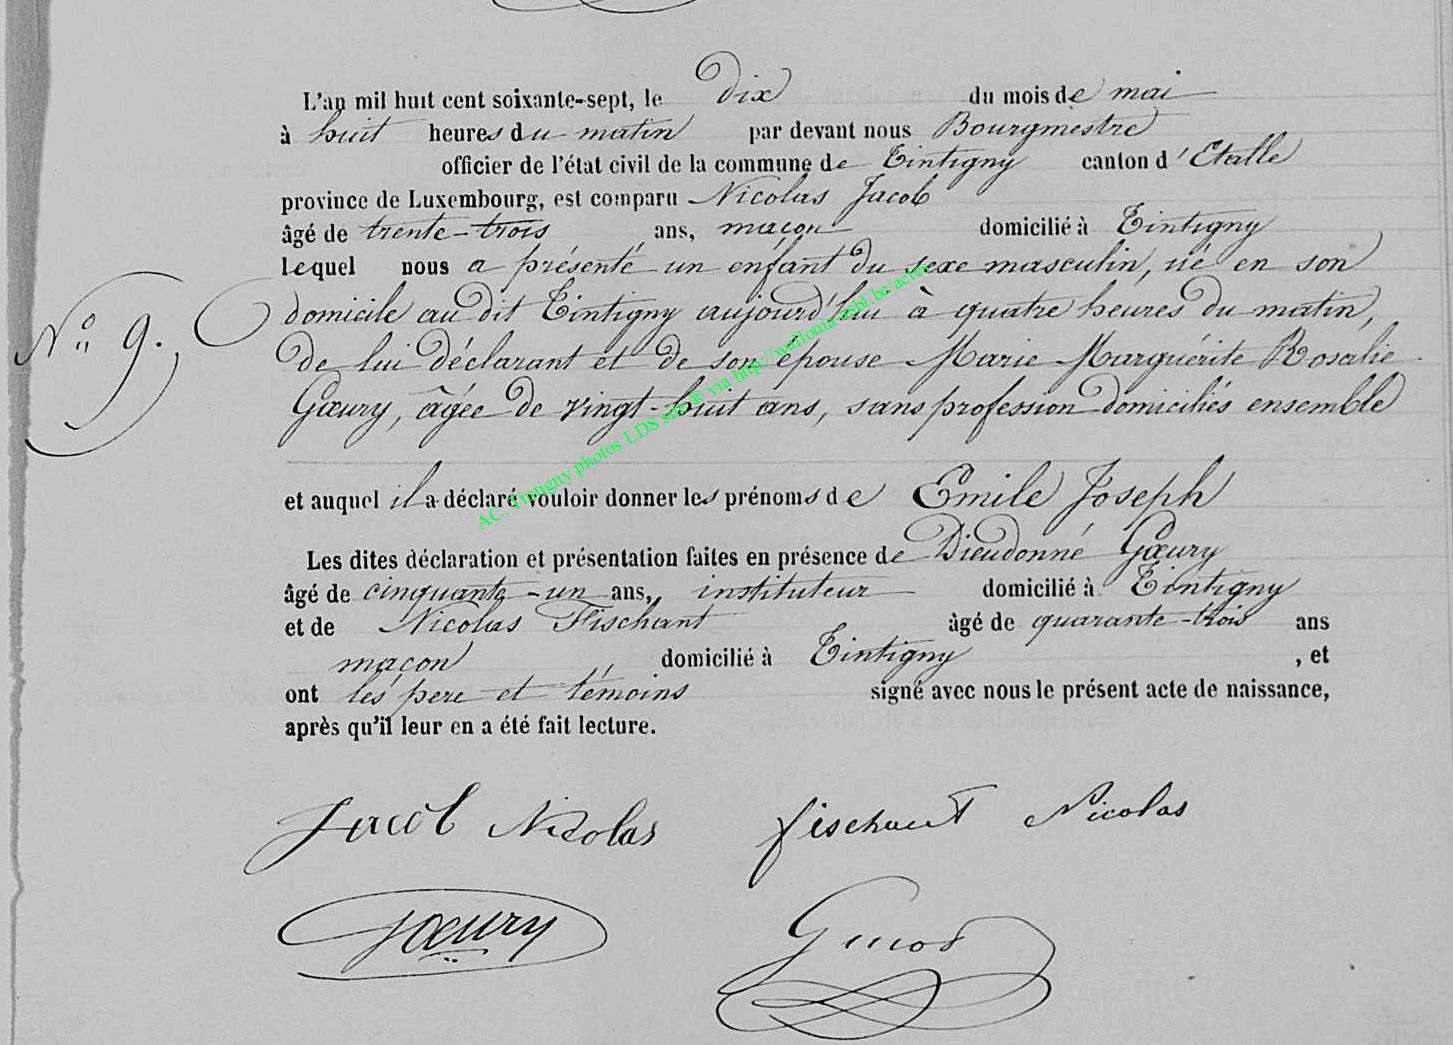 L'an mil huit cent soixante-sept, le dix du mois de mai
à huit heures du matin par devant nous Bourgmestre
officier de l'état civil de la commune de Tintigny canton d'Etalle
province de Luxembourg, est comparu Nicolas Jacob
âgé de trente-trois ans, maçon domicilié à Tintigny
lequel nous a présenté un enfant du sexe masculin, né en son
N° 9. domicile au dit Tintigny aujourd'hui à quatre heures du matin,
de lui déclarant et de son épouse Marie Marguérite Rosalie
Gœury, âgée de vingt-huit ans, sans profession domiciliés ensemble
et auquel il a déclaré vouloir donner les prénoms de Emile Joseph
Les dites déclaration et présentation faites en présence de Dieudonné Gœury
âgé de cinquante-un ans, instituteur domicilié à Tintigny
et de Nicolas Fischant âgé de quarante-trois ans
maçon domicilié à Tintigny , et
ont les père et témoins signé avec nous le présent acte de naissance,
après qu'il leur en a été fait lecture.
Jacob Nicolas fischant Nicolas
Gœury
AC. Tintigny photos LDS sur © via http://wallonia.asbl.be/actes